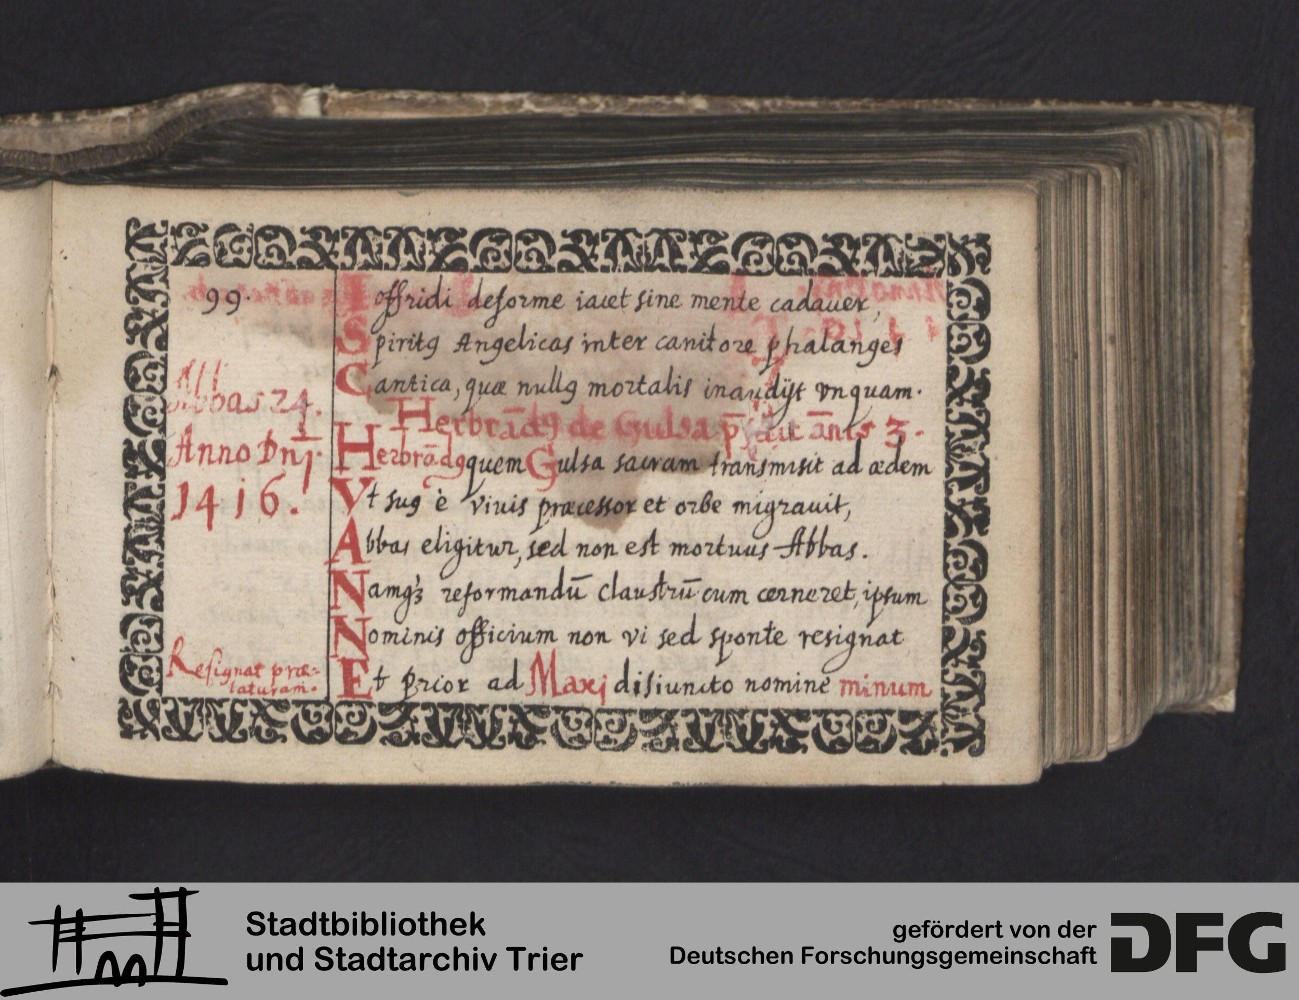 99.
Ioffridi deforme iacet sine mente cadauer,
Spiritꝯ Angelicas inter canit ore phalanges
Cantica, quæ nullꝯ mortalis inaudijt vnquam.
Abbas 24.
Anno Dnī
1416.
Herbrādꝯ de Gulsa p̄fuit ānis 3.
Herbrādꝯ quem Gulsa sacram transmisit ad ædem
Vt suꝯ è viuis præcessor et orbe migrauit,
Abbas eligitur, sed non est mortuus Abbas.
Namqꝫ reformandū claustrū cum cerneret, ipsum
Nominis officium non vi sed sponte resignat
Resignat præ-
laturam.
Et prior ad Maxi disiuncto nomine minum
Stadtbibliothek
und Stadtarchiv Trier
gefördert von der
Deutschen Forschungsgemeinschaft
DFG